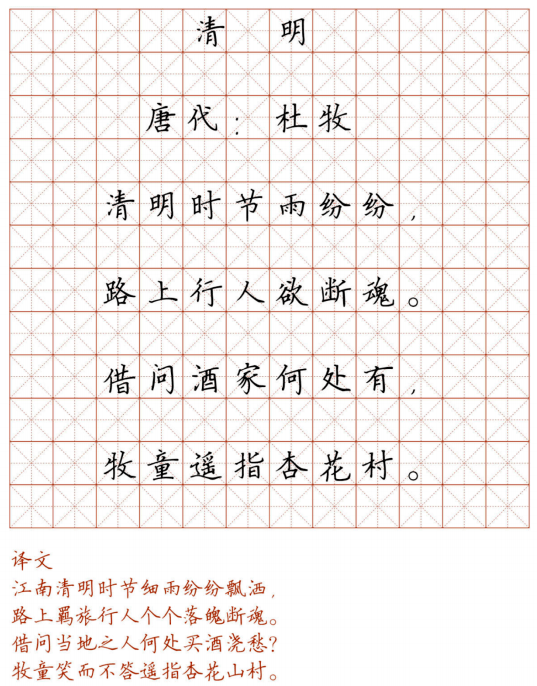 清 明
唐代：杜牧
清明时节雨纷纷，
路上行人欲断魂。
借问酒家何处有，
牧童遥指杏花村。
译文
江南清明时节细雨纷纷飘洒，
路上羁旅行人个个落魄断魂。
借问当地之人何处买酒浇愁？
牧童笑而不答遥指杏花山村。